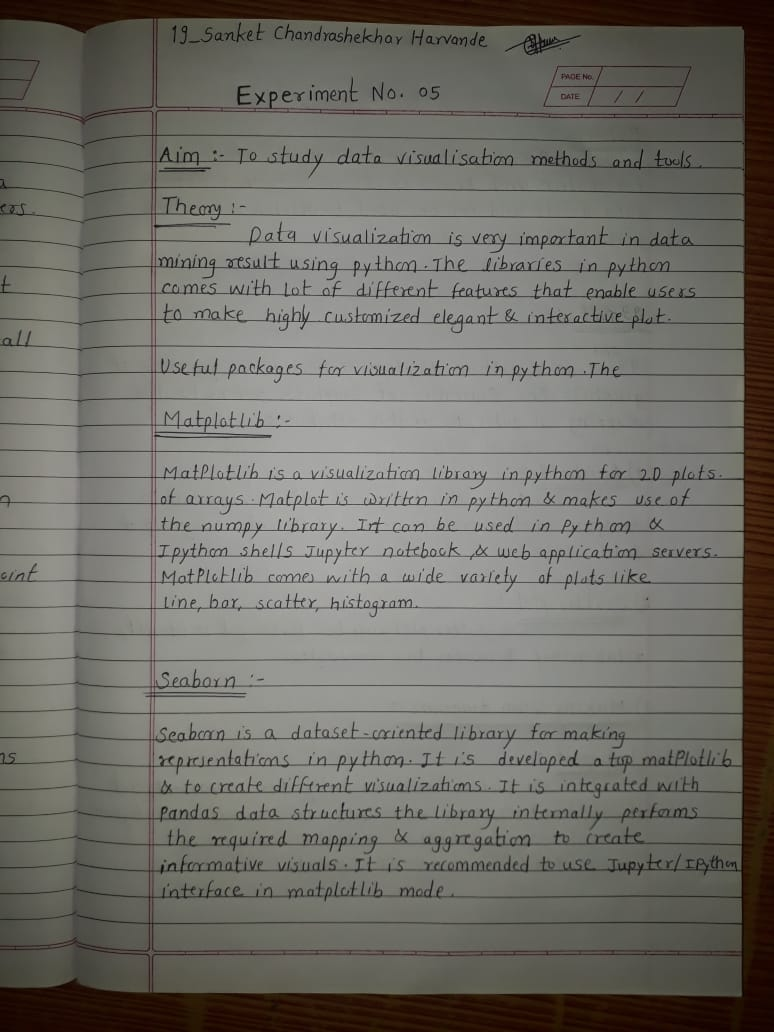 19_Sanket Chandrashekhar Harvande
Experiment No. 05
PAGE No.
DATE / /
Aim :- To study data visualisation methods and tools.
Theory :-
Data visualization is very important in data
mining result using python. The libraries in python
comes with lot of different features that enable users
to make highly customized elegant & interactive plot.
Useful packages for visualization in python. The
Matplotlib :-
MatPlotlib is a visualization library in python for 2D plots.
of arrays. Matplot is written in python & makes use of
the numpy library. Irt can be used in Python &
Ipython shells Jupyter notebook, & web application servers.
MatPlotlib comes with a wide variety of plots like
line, bar, scatter, histogram.
Seaborn :-
Seaborn is a dataset-oriented library for making
representations in python. It is developed a top matPlotlib
& to create different visualizations. It is integrated with
Pandas data structures the library internally performs
the required mapping & aggregation to create
informative visuals. It is recommended to use Jupyter/IPython
interface in matplotlib mode.
a
ers.
t
all
n
oint
ns